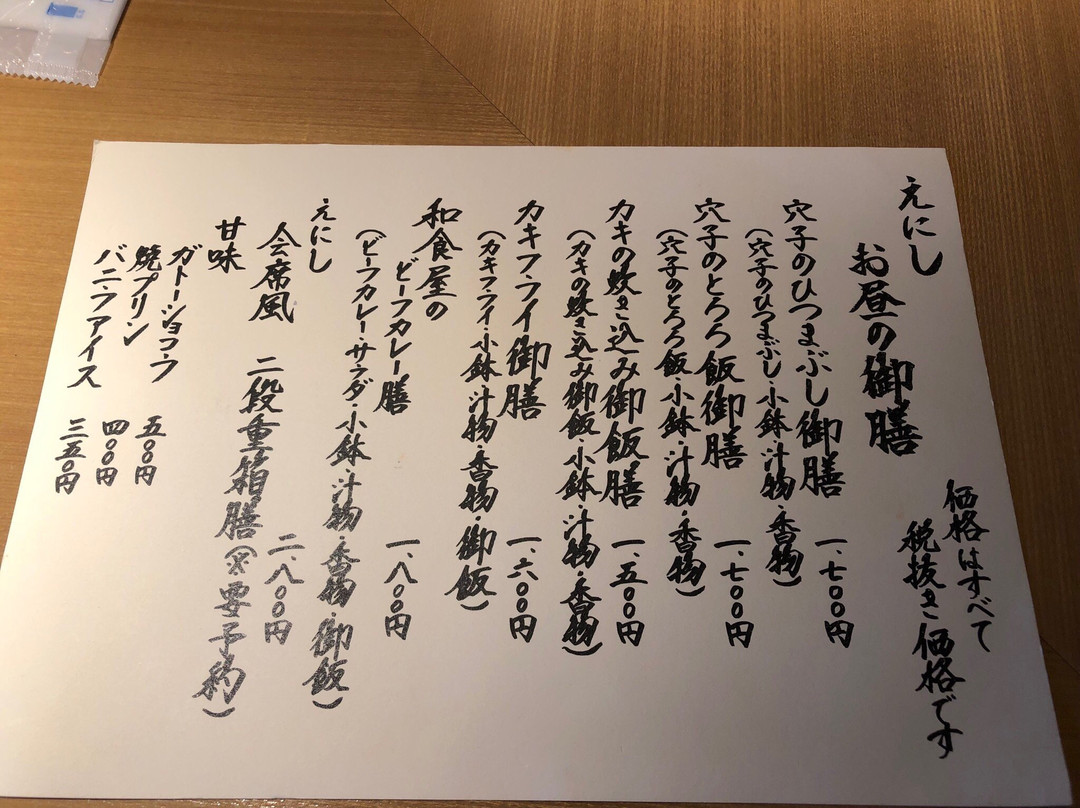 えにし
お昼の御膳
価格はすべて
税抜き価格です
穴子のひつまぶし御膳 一、七〇〇円
(穴子のひつまぶし・小鉢・汁物・香物)
穴子のとろろ飯御膳 一、七〇〇円
(穴子のとろろ飯・小鉢・汁物・香物)
カキの炊き込み御飯膳 一、五〇〇円
(カキの炊き込み御飯・小鉢・汁物・香物)
カキフライ御膳 一、六〇〇円
(カキフライ・小鉢・汁物・香物・御飯)
和食屋の
ビーフカレー膳 一、八〇〇円
(ビーフカレー・サラダ・小鉢・汁物・香物・御飯)
えにし
会席風 二、八〇〇円
二段重箱膳(※要予約)
甘味
ガトーショコラ 五〇〇円
焼プリン 四〇〇円
バニラアイス 三五〇円